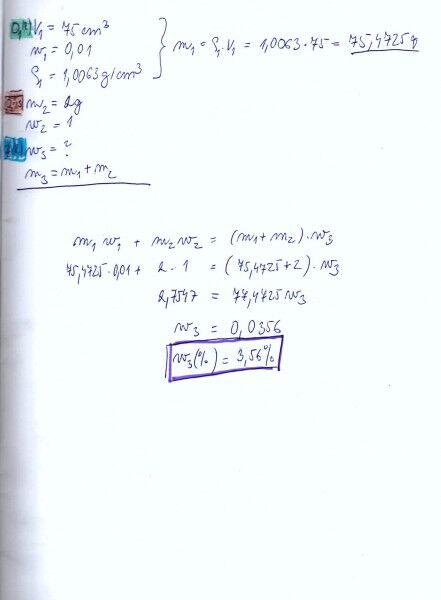 V₁ = 75 cm³
w₁ = 0,01
ρ₁ = 1,0063 g/cm³
m₁ = ρ₁·V₁ = 1,0063·75 = 75,4725 g
m₂ = 2g
w₂ = 1
w₃ = ?
m₃ = m₁ + m₂
m₁ w₁ + m₂ w₂ = (m₁+m₂)·w₃
75,4725·0,01 + 2·1 = (75,4725+2)·w₃
2,7547 = 77,4725 w₃
w₃ = 0,0356
w₃(%) = 3,56%